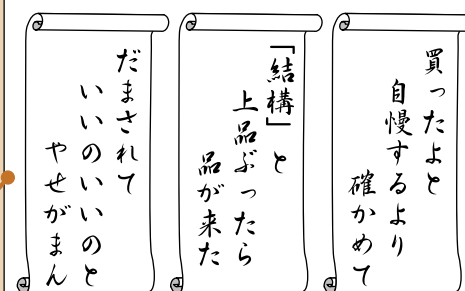 買ったよと
自慢するより
確かめて
「結構」と
上品ぶったら
品が来た
だまされて
いいのいいのと
やせがまん